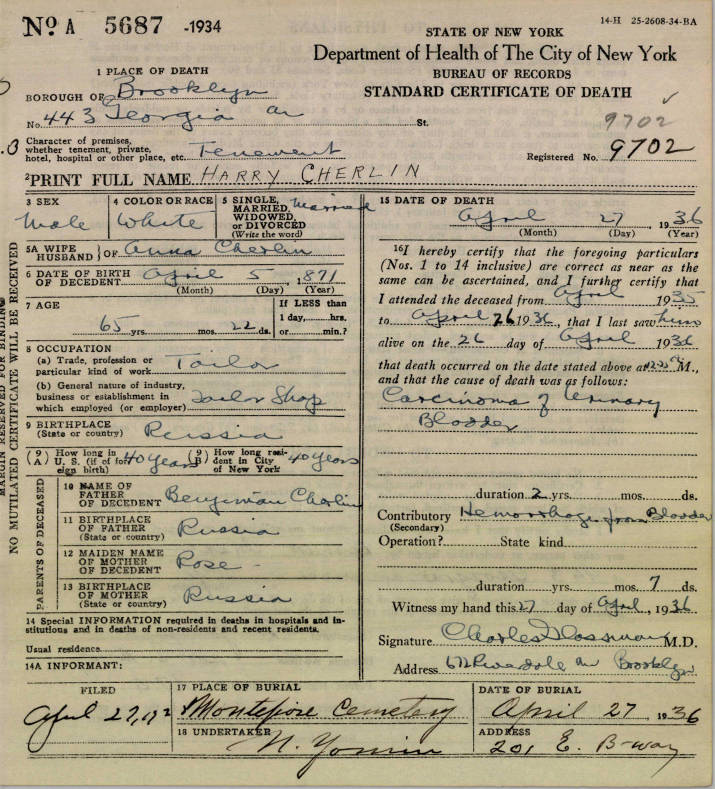 14-H 25-2608-34-BA
No. A 5687 -1934
STATE OF NEW YORK
Department of Health of The City of New York
BUREAU OF RECORDS
STANDARD CERTIFICATE OF DEATH
1 PLACE OF DEATH
BOROUGH OF Brooklyn
No. 443 Georgia av St.
9702
Character of premises,
whether tenement, private,
hotel, hospital or other place, etc. Tenement
Registered No. 9702
2 PRINT FULL NAME HARRY CHERLIN
3 SEX
Male
4 COLOR OR RACE
White
5 SINGLE,
MARRIED,
WIDOWED,
or DIVORCED
(Write the word)
Married
5A WIFE
HUSBAND } OF Anna Cherlin
6 DATE OF BIRTH
OF DECEDENT April 5, 1871
(Month) (Day) (Year)
7 AGE
65 yrs. mos. 22 ds.
If LESS than
1 day, hrs.
or min.?
8 OCCUPATION
(a) Trade, profession or
particular kind of work Tailor
(b) General nature of industry,
business or establishment in
which employed (or employer) Tailor Shop
9 BIRTHPLACE
(State or country) Russia
(9 A) How long in
U. S. (if of for-
eign birth) 40 years
(9 B) How long resi-
dent in City
of New York 40 years
PARENTS OF DECEASED
10 NAME OF
FATHER
OF DECEDENT Benjamin Cherlin
11 BIRTHPLACE
OF FATHER
(State or country) Russia
12 MAIDEN NAME
OF MOTHER
OF DECEDENT Rose -
13 BIRTHPLACE
OF MOTHER
(State or country) Russia
14 Special INFORMATION required in deaths in hospitals and in-
stitutions and in deaths of non-residents and recent residents.
Usual residence
14A INFORMANT:
15 DATE OF DEATH
April 27, 1936
(Month) (Day) (Year)
16 I hereby certify that the foregoing particulars
(Nos. 1 to 14 inclusive) are correct as near as the
same can be ascertained, and I further certify that
I attended the deceased from April 1935
to April 26 1936, that I last saw him
alive on the 26 day of April 1936
that death occurred on the date stated above at M.,
and that the cause of death was as follows:
Carcinoma of Urinary
Bladder
duration 2 yrs. mos. ds.
Contributory Hemorrhage from Bladder
(Secondary)
Operation? State kind
duration yrs. mos. 7 ds.
Witness my hand this 27 day of April, 1936
Signature Charles Glassman M.D.
Address Riverdale av Brooklyn
FILED
April 27,
17 PLACE OF BURIAL
Montefiore Cemetery
DATE OF BURIAL
April 27 1936
18 UNDERTAKER
ADDRESS
201 E. B-way
MARGIN RESERVED FOR BINDING
NO MUTILATED CERTIFICATE WILL BE RECEIVED